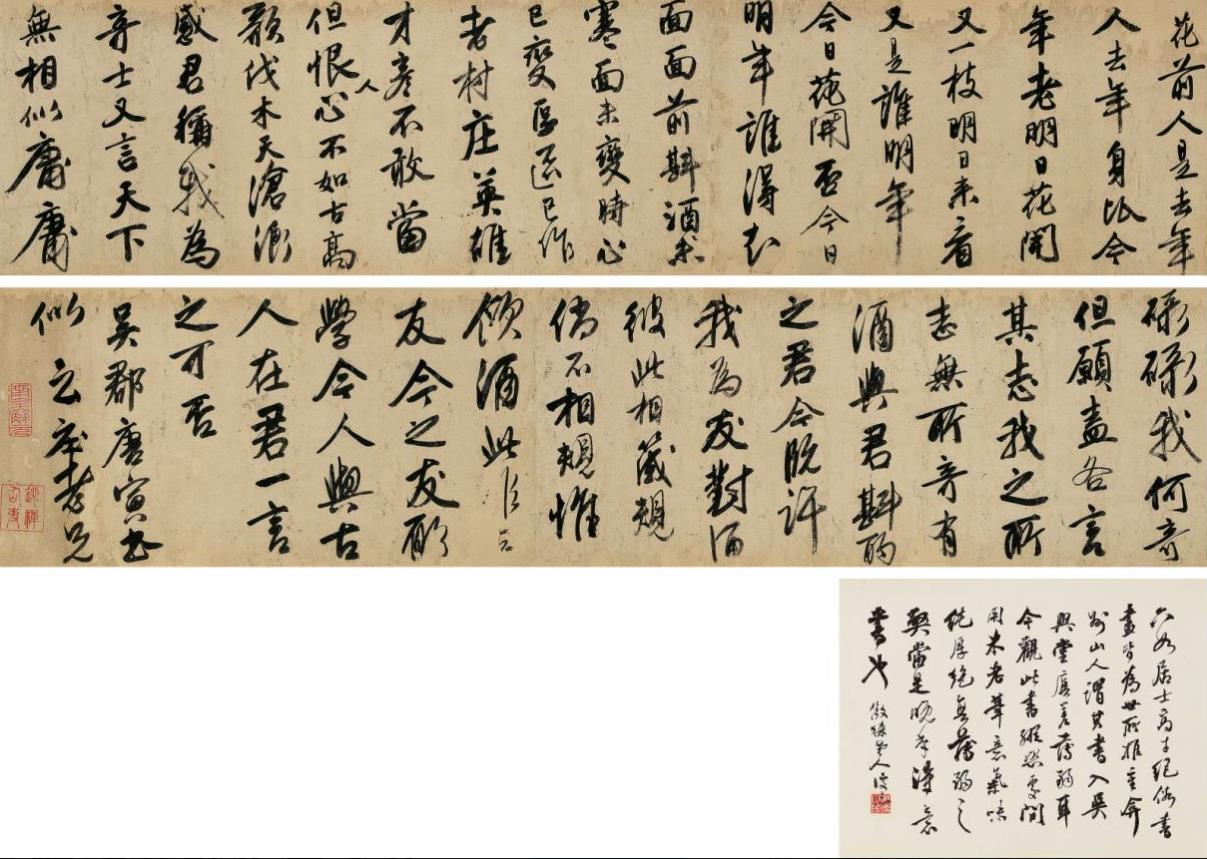 花前人是去年
人去年身比今
年老明日花開
又一枝明日来看
又是誰明年
今日花開否今日
明年誰得知
面面前斟酒未
寒面未變時心
已變區區已作
老村庄英雄
才彦不敢當
但恨人心不如古高
歌伐木天滄浪
感君稱我為
奇士又言天下
無相似庸庸
碌碌我何奇
但願盡各言
其志我之所
志無所奇有
酒與君斟酌
之君今既許
我為友對酒
彼此相箴規
倘不相規惟
飲酒此
友今之友願
學今人與古
人在君一言
之可否
吳郡唐寅書
似云老兄
六如居士高才絕俗書
畫皆為世所推重弇
州山人謂其書入吳
興堂廡差薄弱耳
今觀此書縱恣處間
用米老筆意氣味
純厚絕無薄弱之
弊當是晚年得意
書也